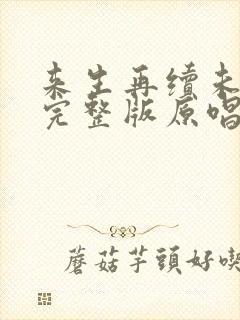 来生再续未
完整版原唱
蘑菇芋頭好喫